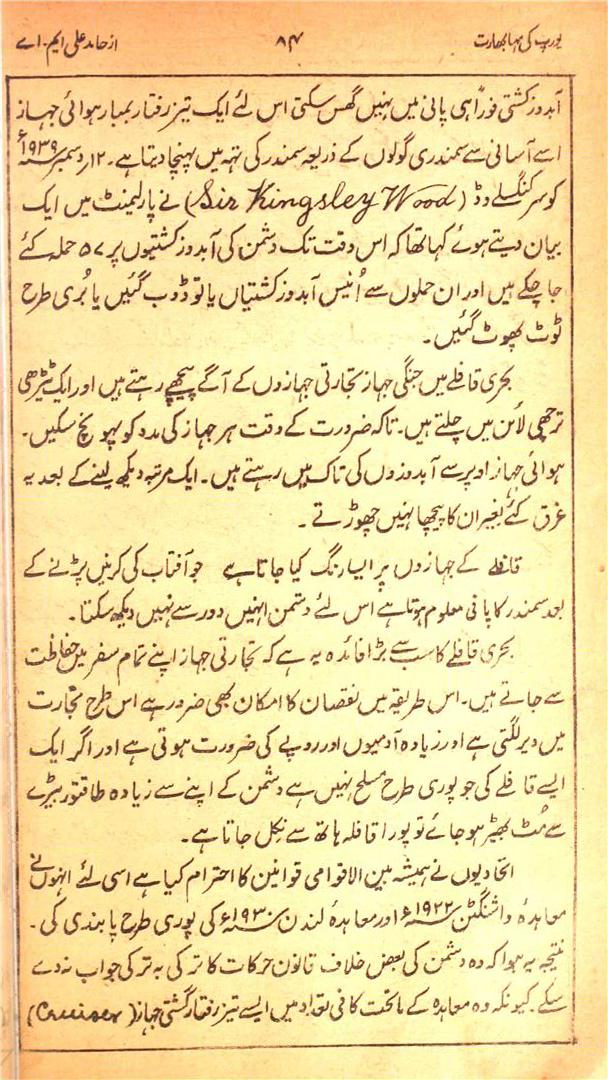 یورپ کی مہابھارت ۸۴ از حامد علی ایم۔اے
آبدوز کشتی فوراً ہی پانی میں نہیں گھس سکتی اس لئے ایک تیز رفتار بمبار ہوائی جہاز
اسے آسانی سے سمندری گولوں کے ذریعہ سمندر کی تہہ میں پہنچا دیتا ہے۔ ۱۲ر دسمبر ۱۹۳۹ء
کو سر کنگسلے وڈ (Sir Kingsley Wood) نے پارلیمنٹ میں ایک
بیان دیتے ہوئے کہا تھا کہ اس وقت تک دشمن کی آبدوز کشتیوں پر ۵۷ حملے کئے
جا چکے ہیں اور ان حملوں سے اُنیس آبدوز کشتیاں یا تو ڈوب گئیں یا بُری طرح
ٹوٹ پھوٹ گئیں۔
بحری قافلے میں جنگی جہاز تجارتی جہازوں کے آگے پیچھے رہتے ہیں اور ایک ٹیڑھی
ترچھی لائن میں چلتے ہیں۔ تاکہ ضرورت کے وقت ہر جہاز کی مدد کو پہونچ سکیں۔
ہوائی جہاز اوپر سے آبدوزوں کی تاک میں رہتے ہیں۔ ایک مرتبہ دیکھ لینے کے بعد یہ
غرق کئے بغیر ان کا پیچھا نہیں چھوڑتے۔
قافلے کے جہازوں پر ایسا رنگ کیا جاتا ہے جو آفتاب کی کرنیں پڑنے کے
بعد سمندر کا پانی معلوم ہوتا ہے اس لئے دشمن انہیں دور سے نہیں دیکھ سکتا۔
بحری قافلے کا سب سے بڑا فائدہ یہ ہے کہ تجارتی جہاز اپنے تمام سفر میں حفاظت
سے جاتے ہیں۔ اس طریقہ میں نقصان کا امکان بھی ضرور ہے اس طرح تجارت
میں دیر لگتی ہے اور زیادہ آدمیوں اور روپے کی ضرورت ہوتی ہے اور اگر ایک
ایسے قافلے کی جو پوری طرح مسلح نہیں ہے دشمن کے اپنے سے زیادہ طاقتور بیڑے
سے مُٹ بھیڑ ہو جائے تو پورا قافلہ ہاتھ سے نکل جاتا ہے۔
اتحادیوں نے ہمیشہ بین الاقوامی قوانین کا احترام کیا ہے اسی لئے انہوں نے
معاہدۂ واشنگٹن ۱۹۲۲ء اور معاہدۂ لندن ۱۹۳۰ء کی پوری طرح پابندی کی۔
نتیجہ یہ ہوا کہ وہ دشمن کی بعض خلاف قانون حرکات کا ترکی بہ ترکی جواب نہ دے
سکے۔ کیونکہ وہ معاہدہ کے ماتحت کافی تعداد میں ایسے تیز رفتار گشتی جہاز (Cruiser)